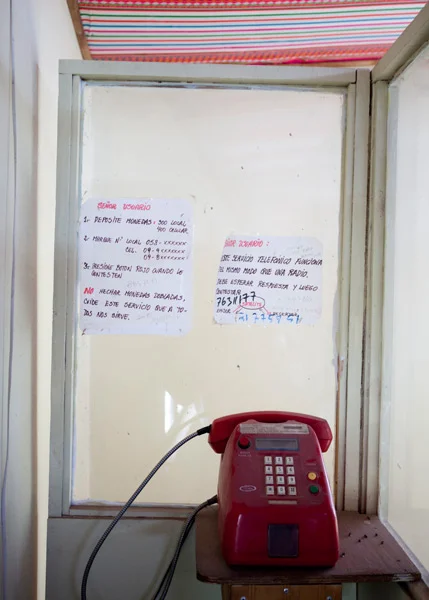 SEÑOR USUARIO
1- DEPOSITE MONEDAS: 300 LOCAL
400 CELULAR
2- MARQUE Nº LOCAL 053-xxxxxx
CEL. 09-9xxxxxxx
09-8xxxxxxx
3- PRESIONE BOTON ROJO CUANDO LE
CONTESTEN
NO HECHAR MONEDAS DOBLADAS,
CUIDE ESTE SERVICIO QUE A TO-
DOS NOS SIRVE.
SEÑOR USUARIO:
ESTE SERVICIO TELEFONICO FUNCIONA
DEL MISMO MODO QUE UNA RADIO,
DEBE ESPERAR RESPUESTA Y LUEGO
CONTESTAR
76311177